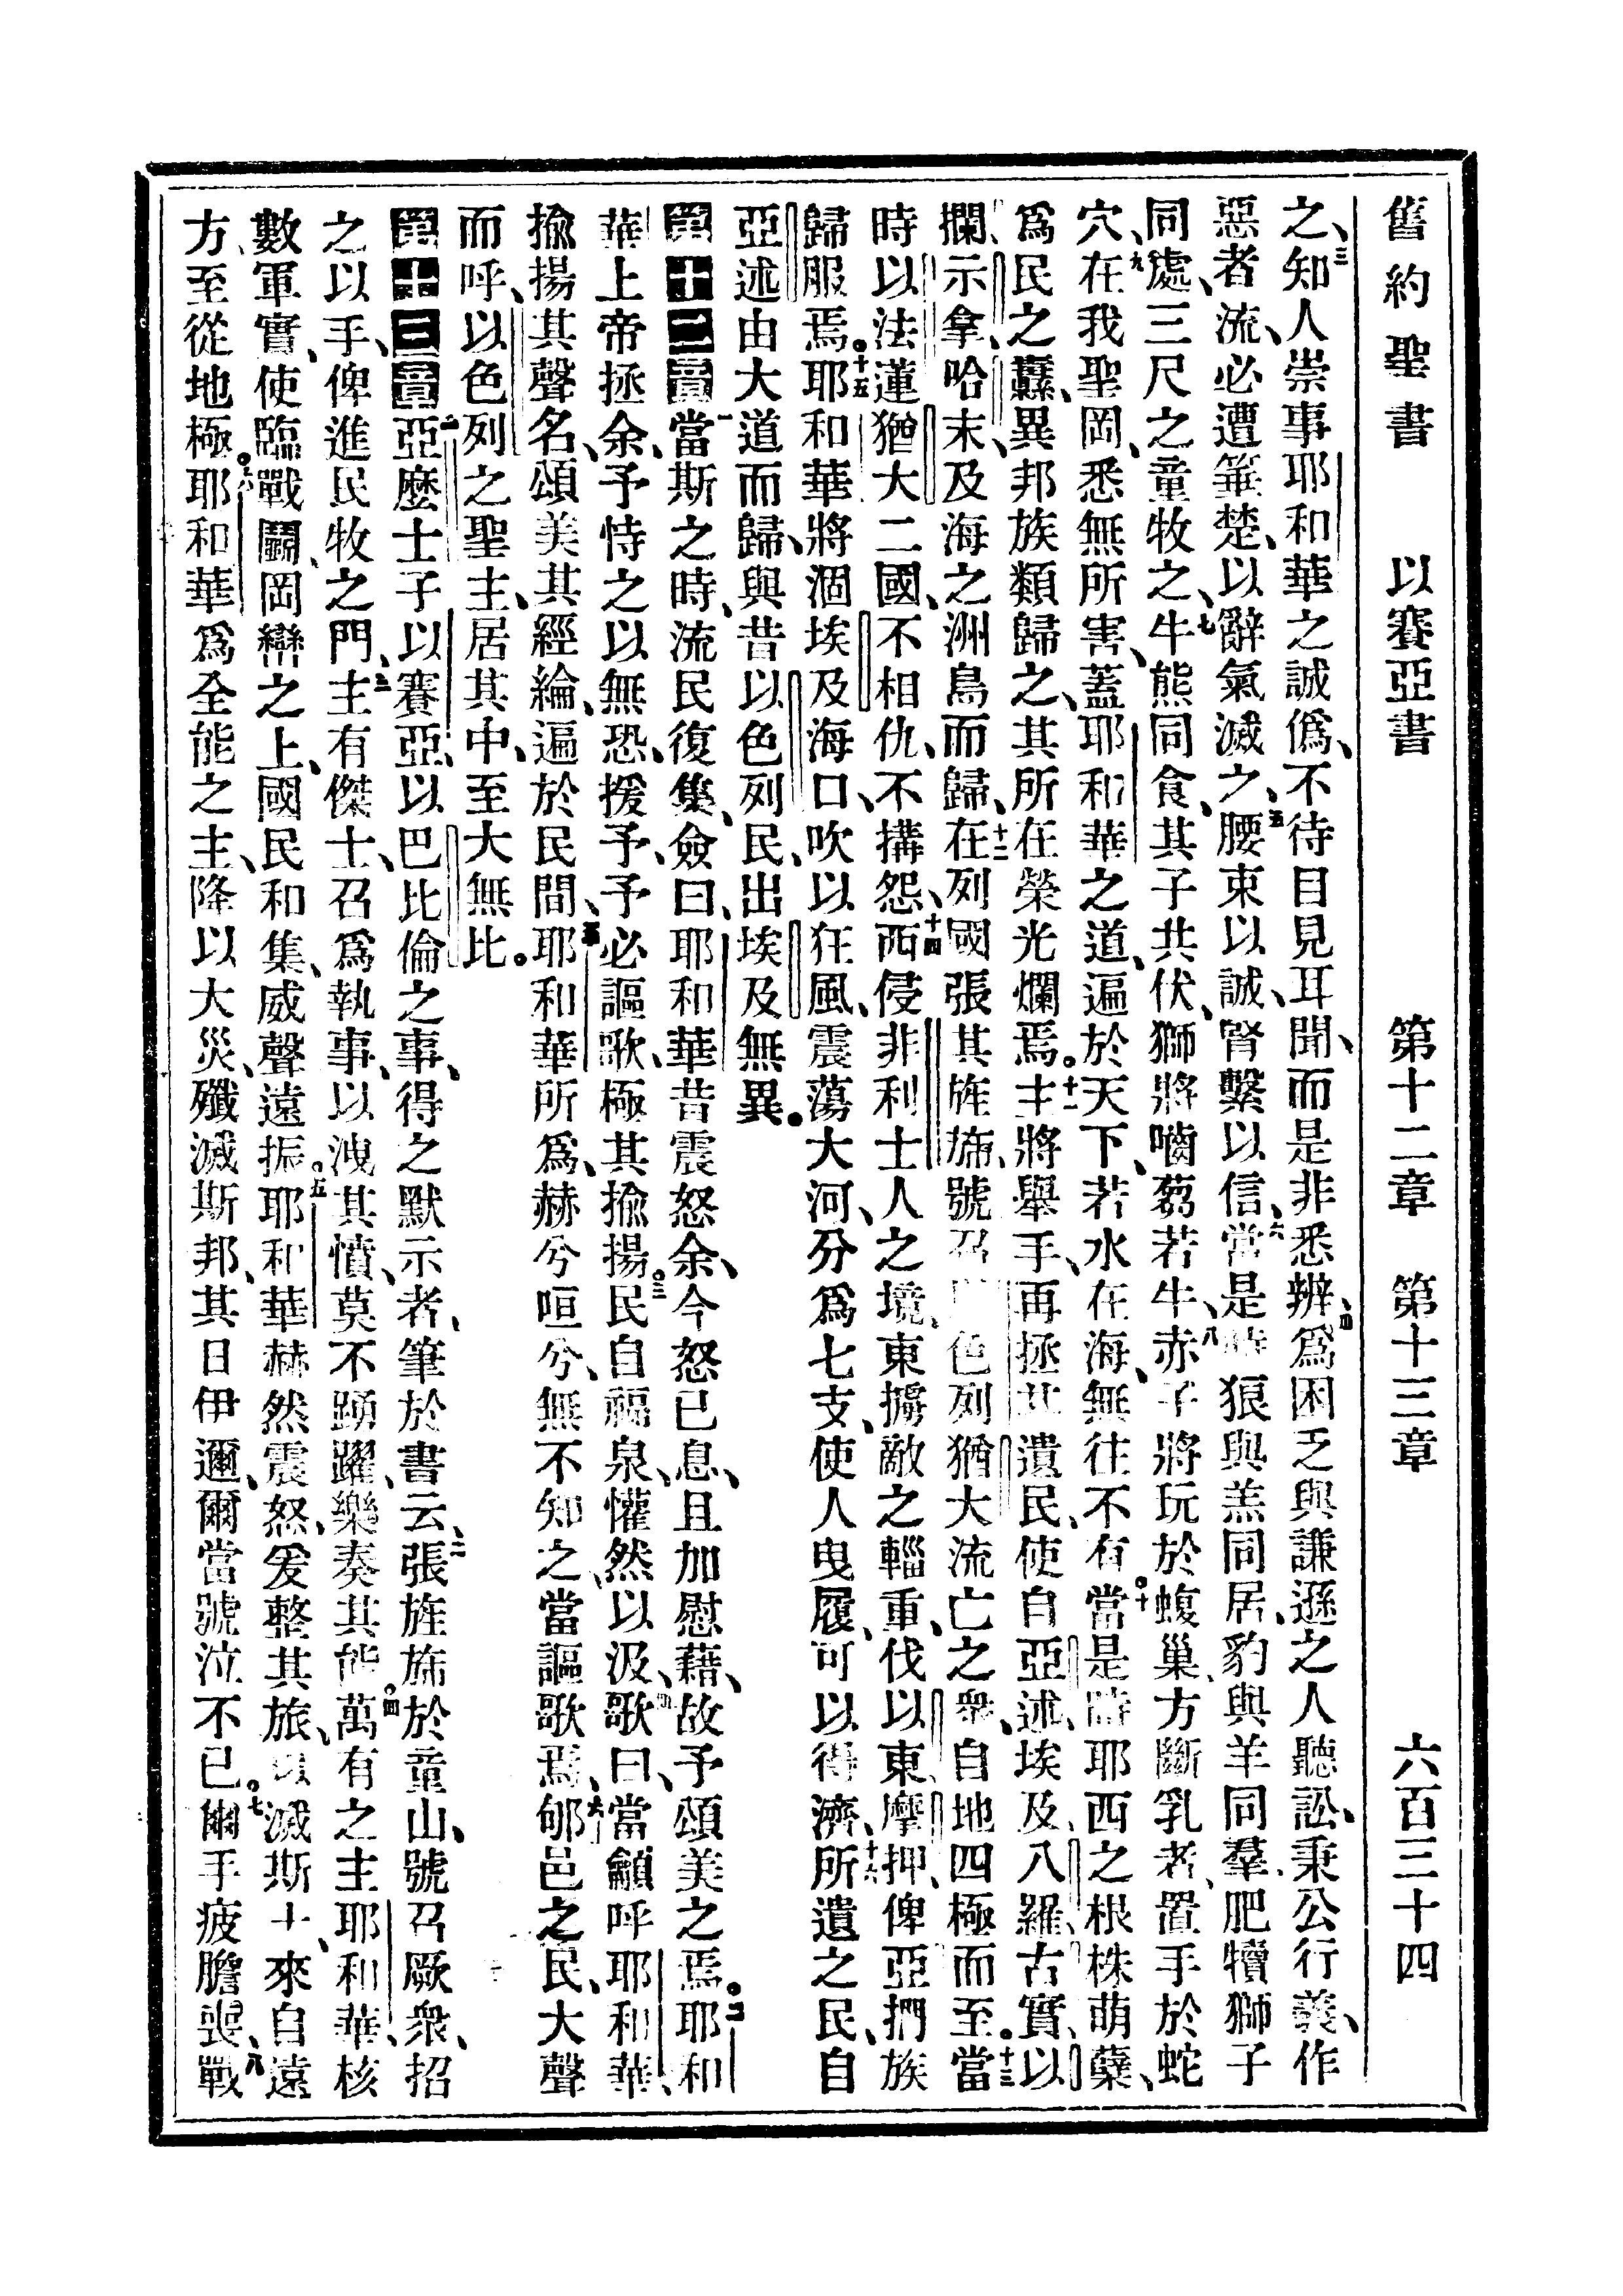 舊約聖書 以賽亞書 第十二章 第十三章 六百三十四
之、三知人崇事耶和華之誠僞、不待目見耳聞、而是非悉辨、四爲困乏與謙遜之人聽訟、秉公行義、作
惡者流、必遭箠楚、以辭氣滅之、五腰束以誠、腎繫以信、六當是時狼與羔同居、豹與羊同羣、肥犢獅子
同處、三尺之童牧之、七牛熊同食、其子共伏、獅將嚙芻若牛、八赤子將玩於蝮巢、方斷乳者、置手於蛇
穴、九在我聖岡、悉無所害、蓋耶和華之道、遍於天下、若水在海、無往不有。十當是時耶西之根株萌蘖、
爲民之纛、異邦族類歸之、其所在榮光爛焉。十一主將舉手、再拯其遺民、使自亞述、埃及、八羅、古實、以
攔、示拿、哈末、及海之洲島而歸、十二在列國張其旌旆、號召以色列猶大流亡之衆、自地四極而至。十三當
時以法蓮猶大二國、不相仇、不搆怨、十四西侵非利士人之境、東擄敵之輜重、伐以東、摩押、俾亞捫族
歸服焉。十五耶和華將涸埃及海口、吹以狂風、震蕩大河、分爲七支、使人曳履、可以得濟、十六所遺之民、自
亞述由大道而歸、與昔以色列民、出埃及無異。
第十二章一當斯之時、流民復集、僉曰、耶和華昔震怒余、今怒已息、且加慰藉、故予頌美之焉。二耶和
華上帝拯余、予恃之以無恐、援予、予必謳歌、極其揄揚。三民自福泉、懽然以汲、四歌曰、當籲呼耶和華、
揄揚其聲名、頌美其經綸、遍於民間、五耶和華所爲、赫兮咺兮、無不知之、當謳歌焉、六郇邑之民、大聲
而呼、以色列之聖主、居其中、至大無比。
第十三章一亞麼士子以賽亞、以巴比倫之事、得之默示者、筆於書云、二張旌旆於童山、號召厥衆、招
之以手、俾進民牧之門、三主有傑士、召爲執事、以洩其憤、莫不踴躍、樂奏其能。四萬有之主耶和華、核
數軍實、使臨戰鬭、岡巒之上、國民和集、威聲遠振。五耶和華赫然震怒、爰整其旅、以滅斯土、來自遠
方、至從地極。六耶和華爲全能之主、降以大災、殲滅斯邦、其日伊邇、爾當號泣不已。七爾手疲膽喪、八戰